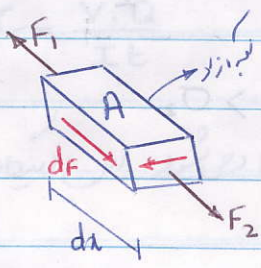 F₁
لبه ازاد
A
dF
F₂
dx